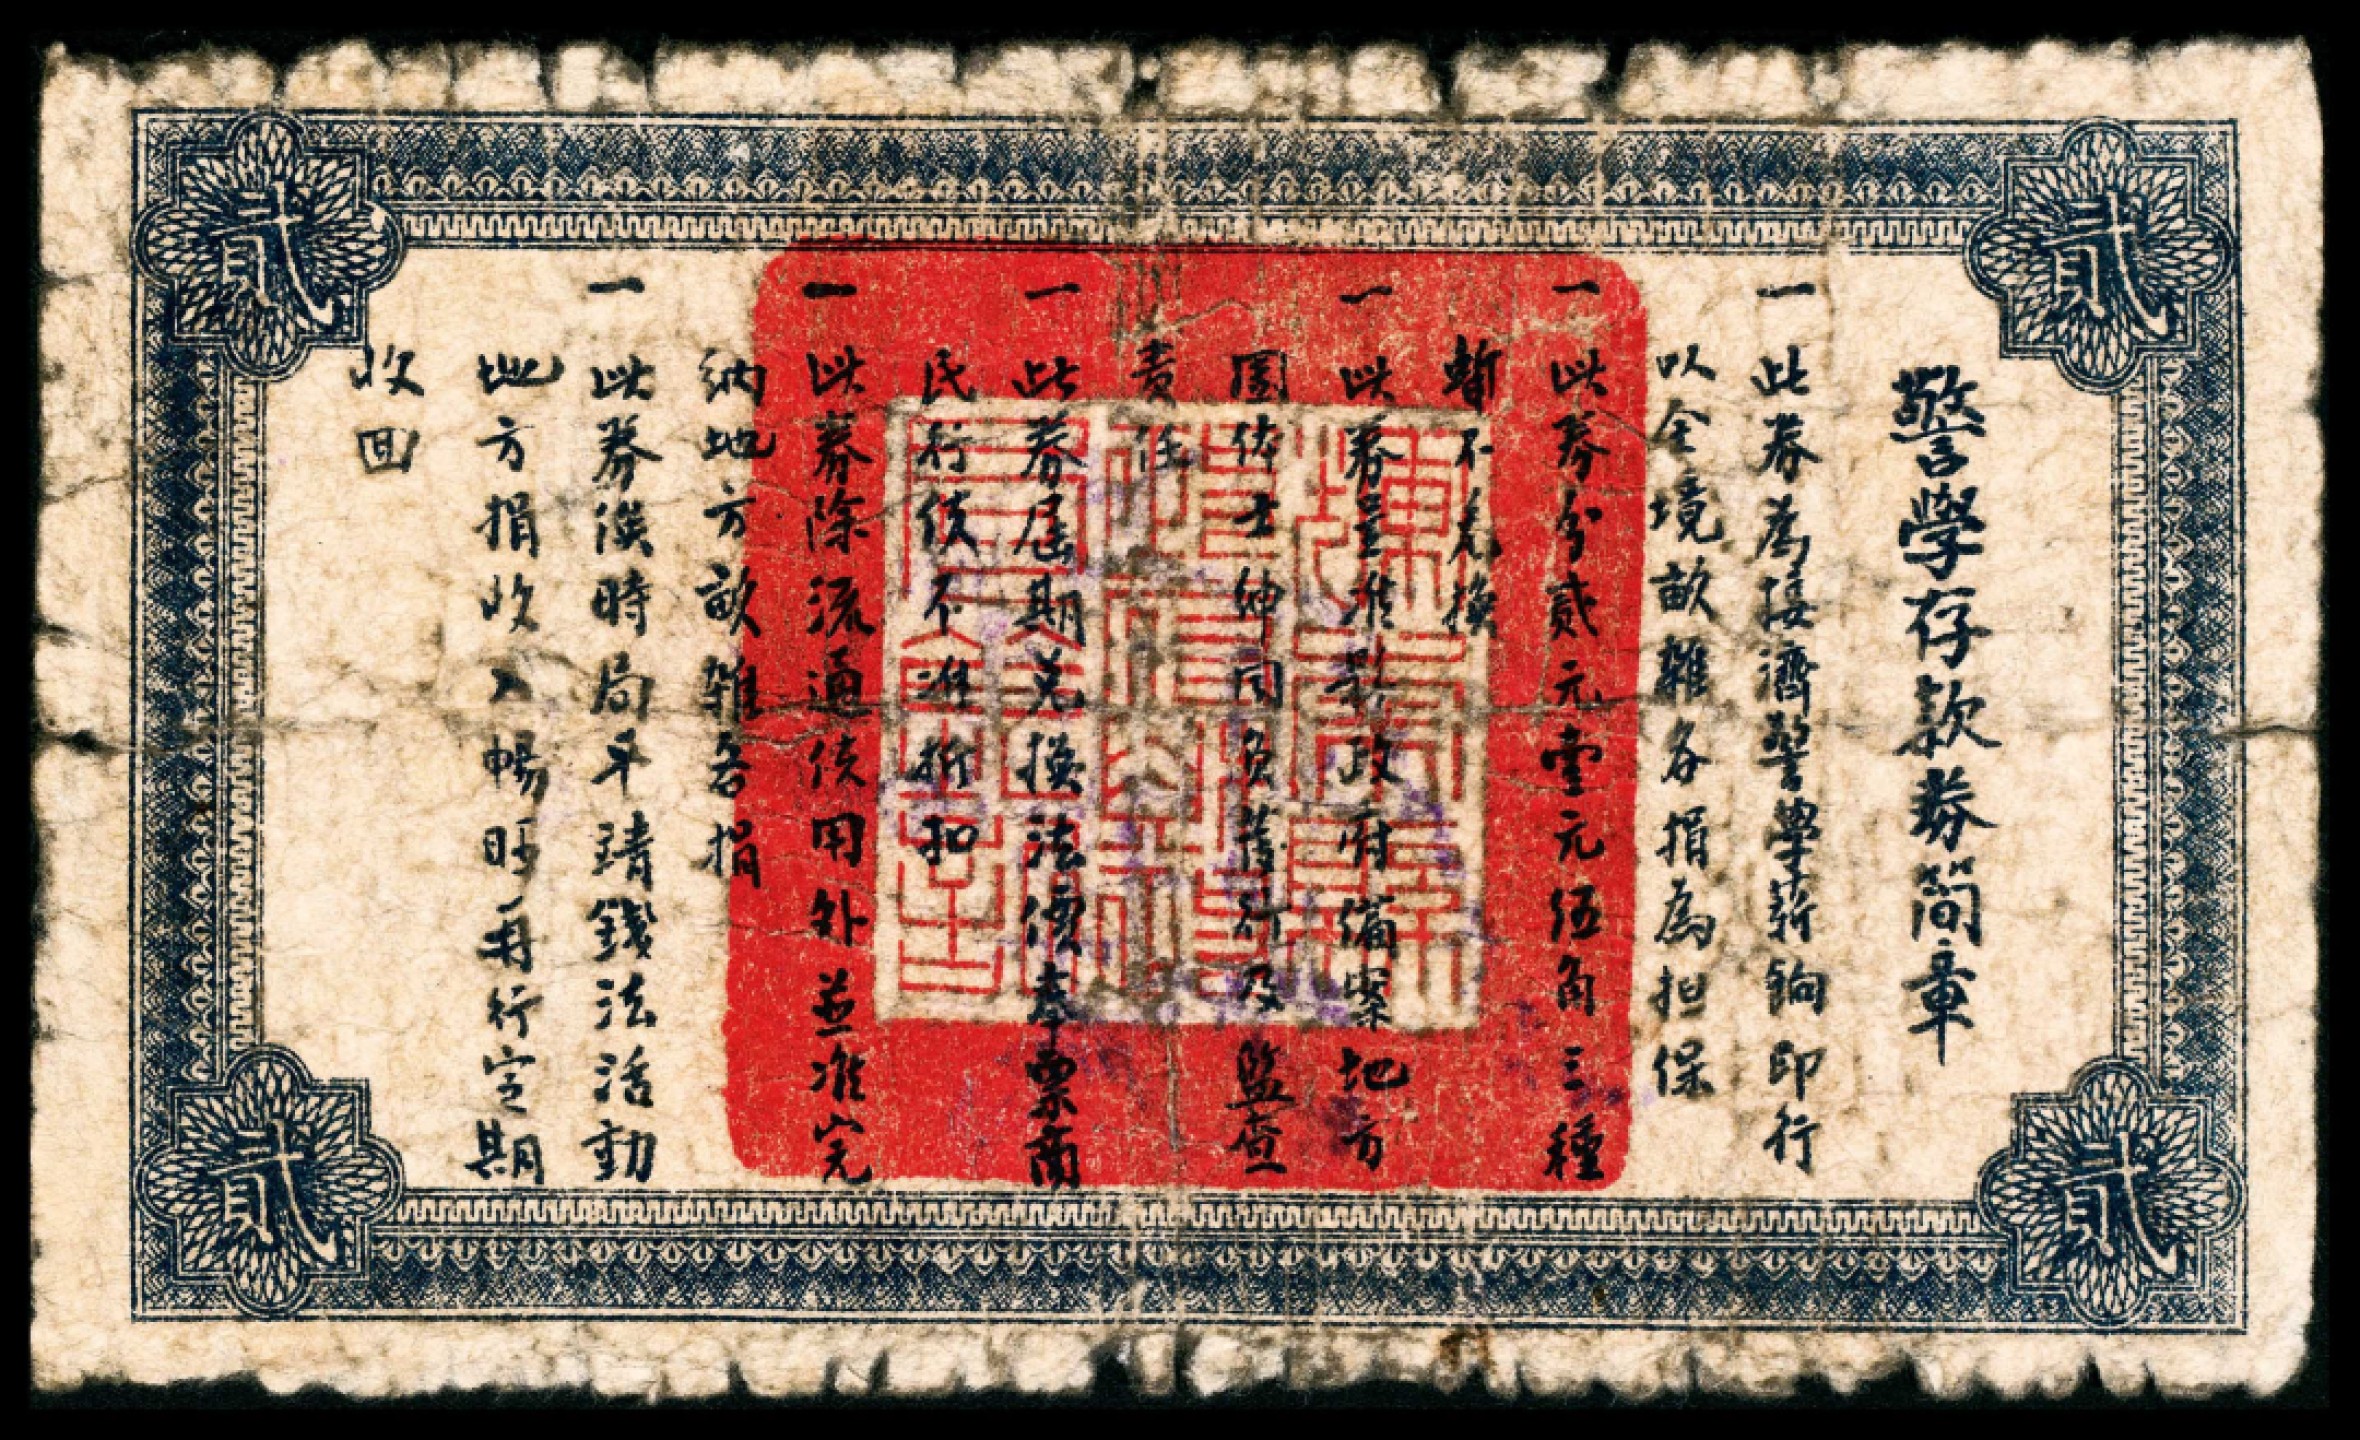 警學存款券简章
一 此券為接濟警學薪餉印行
以全境畝雜各捐為担保
一 此券分貳元壹元伍角三種
暫不兌換
一 此券呈准 政府備案地方
團体士紳同負推行及監查
責任
一 此券屆期兌換法價奉票商
民行使不准折扣
一 此券除流通使用外並准完
納地方畝雜各捐
一 此券俟時局平靖錢法活動
地方捐收入暢旺再行定期
收回
貳
貳
貳
貳